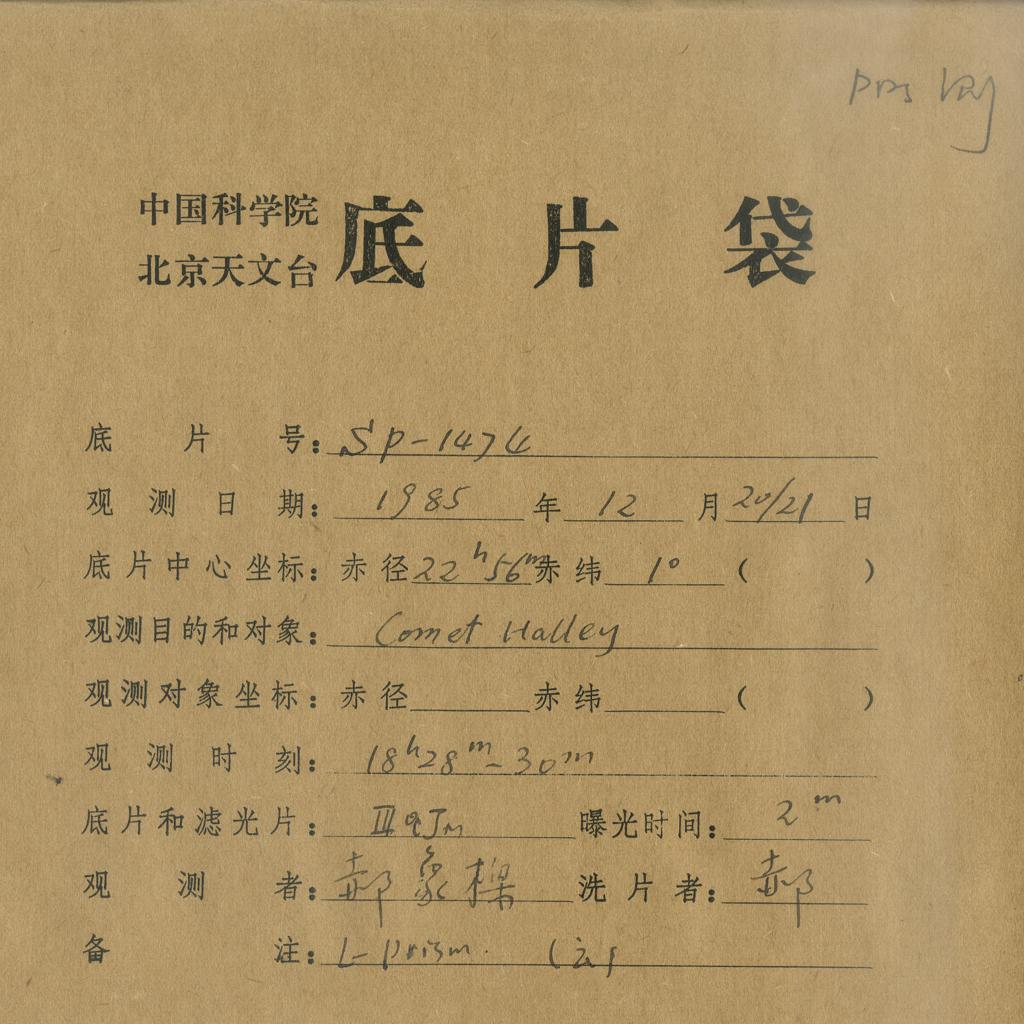 中国科学院
北京天文台 底片袋
底片号：SP-1474
观测日期：1985年12月20/21日
底片中心坐标：赤径22h56m赤纬1°（ ）
观测目的和对象：Comet Halley
观测对象坐标：赤径 赤纬 （ ）
观测时刻：18h28m-30m
底片和滤光片：IIIaJm 曝光时间：2m
观测者：郝象樑 洗片者：郝
备注：L-prism.